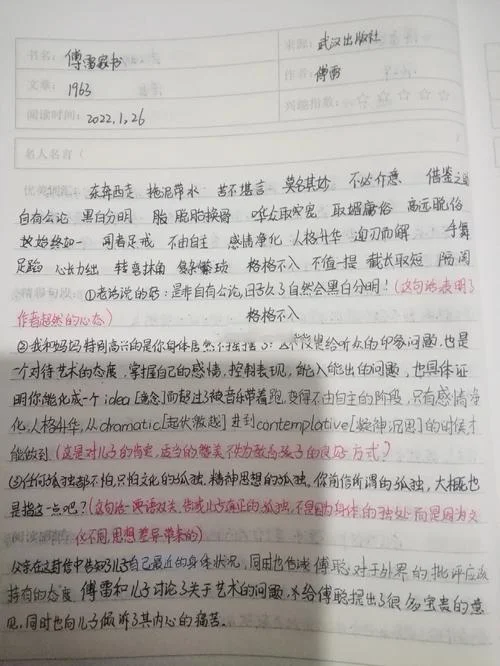 书名: 傅雷家书
来源: 武汉出版社
文章: 1963
作者: 傅雷
阅读时间: 2022.1.26
兴能指数: ☆ ☆ ☆ ☆ ☆
名人名言 (
优美词汇: 东奔西走 拖泥带水 苦不堪言 莫名其妙 不必介意 借鉴之
自有公论 黑白分明 脱胎换骨 哗众取宠 取媚庸俗 高远脱俗
始终如一 闻者足戒 不由自主 感情净化 人格升华 迎刃而解 手舞
足蹈 心长力绌 转弯抹角 复杂繁琐 格格不入 不值一提 截长取短 隔阂
精彩句段: ①老话说的好:是非自有公论,日子久了自然会黑白分明!(这句话表明了
作者超然的心态)
格格不入
②我和妈妈特别高兴的是你身体居然不摇摆了:这不仅是给听众的印象问题,也是
一个对待艺术的态度,掌握自己的感情,控制表现,能入能出的问题,也具体证
明你能化成一个idea[意念]而超过了被音乐带着跑,变得不由自主的阶段,只有感情净
化,人格升华,从dramatic[起伏激越]进到contemplative[凝神沉思]的时候才
能做到(这是对儿子的肯定,适当的赞美不失为教育孩子的很好方式)
③任何孤独都不怕,只怕文化的孤独,精神思想的孤独,你前信所谓的孤独,大概也
是指这一点吧?(这句话一语双关,告诫儿子真正的孤独,不是因为身体的独处而是因为文
化不同,思想差异带来的)
父亲在这封信中告知了儿子自己最近的身体状况,同时也告诫傅聪对于外界的批评应该
持有的态度 傅雷和儿子讨论了关于艺术的问题,给傅聪提出了很多宝贵的意
见,同时也向儿子倾诉了其内心的痛苦。